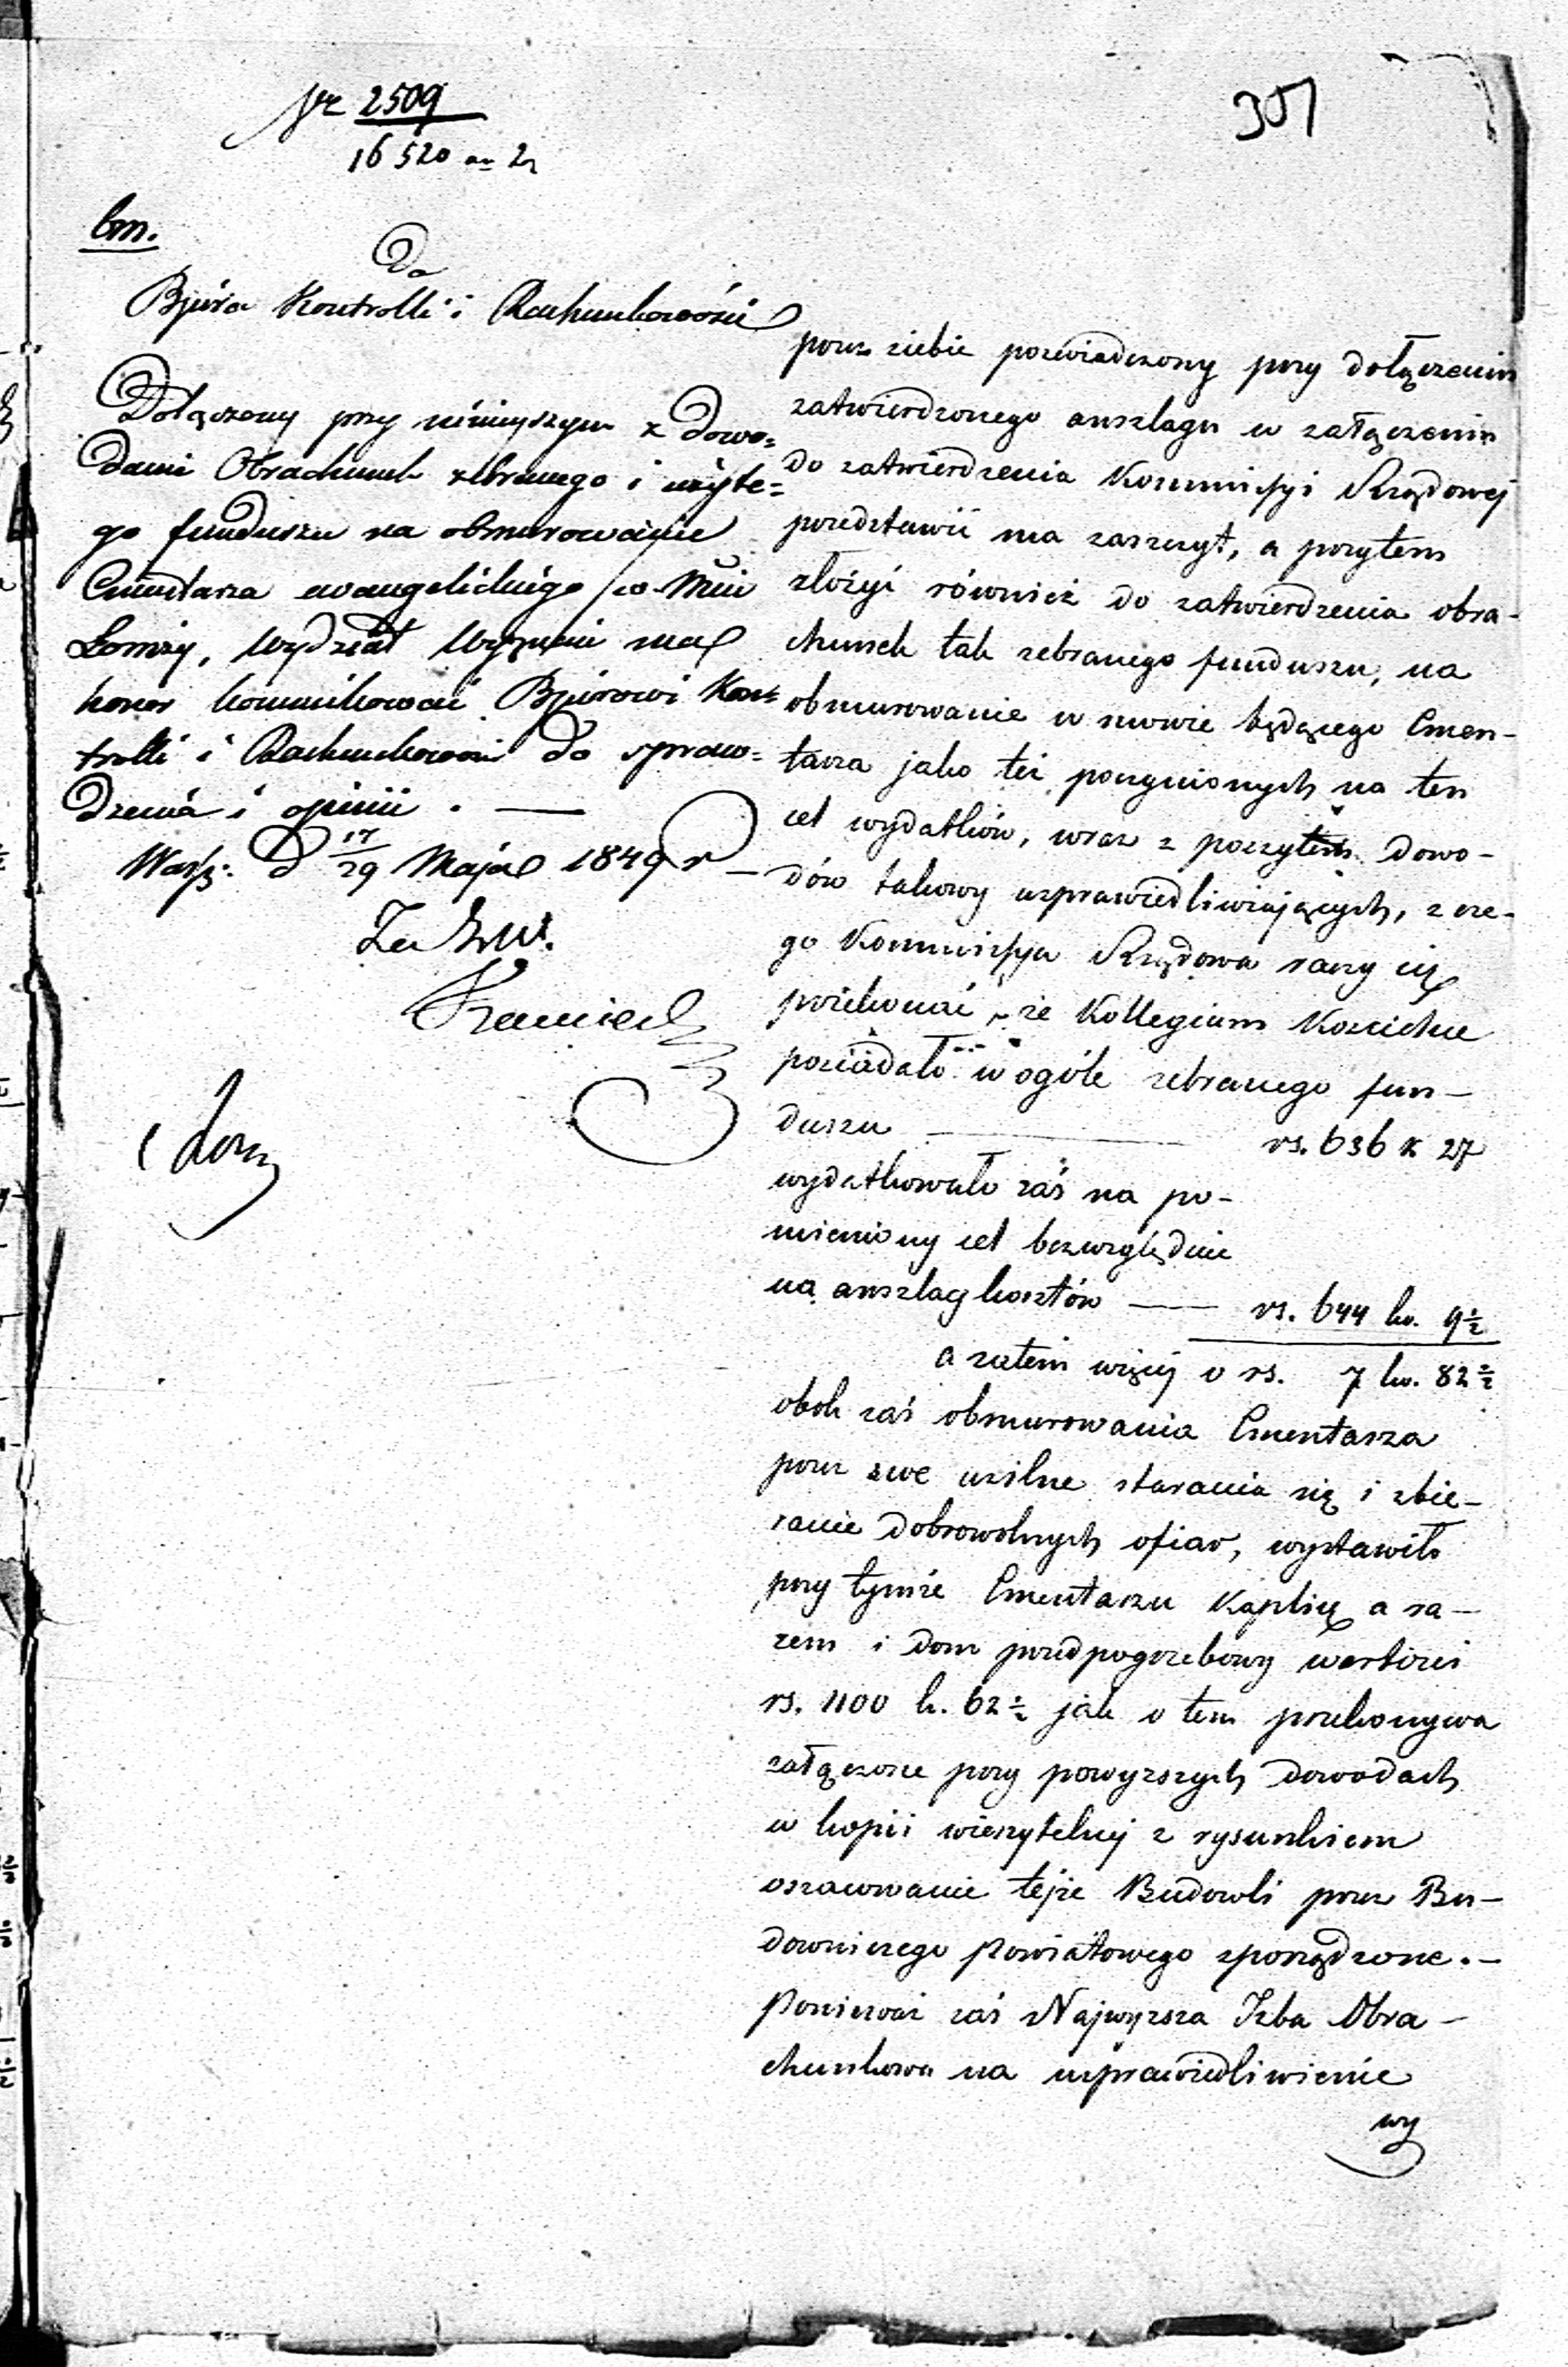 Nr 2509
16520
307
bm.
Do
Bjóra Kontrolli i Rachunkowości
Dołączony przy niniejszym z dowo=
dami Obrachunek zebranego i użyte=
go funduszu na obmurowanie
Cmentarza ewangelickiego w Mieś
Łomży, Wydział Wyznań ma
honor kommunikować Bjórowi Kon=
trolli i Rachunkowości do spraw=
dzenia i opinii. —
Warsz. d 17/29 Maja 1849 r —
Za
przez siebie poświadczony przy dołączeniu
zatwierdzonego anszlagu w załączeniu
do zatwierdzenia Kommissyi Rządowej
przedstawić ma zaszczyt, a przytem
złożyć również do zatwierdzenia obra-
chunek tak zebranego funduszu, na
obmurowanie w mowie będącego Cmen-
tarza jako też poczynionych na ten
cel wydatków, wraz z poszytem dowo-
dów takowy usprawiedliwiających, z cze-
go Kommissya Rządowa raczy się
przekonać, że Kollegium Kościelne
posiadało w ogóle zebranego fun-
duszu — rs. 636 k 27
wydatkowało zaś na po-
mieniony cel bezwzględnie
na anszlag kosztów — rs. 644 ko. 9 1/2
a zatem więcej o rs. 7 ko. 82 1/2
obok zaś obmurowania Cmentarza
przez swe usilne starania się i zbie-
ranie dobrowolnych ofiar, wystawiło
przy tymże Cmentarzu Kaplicę a ra-
zem i dom przedpogrzebowy wartości
rs. 1100 k. 62 1/2 jak o tem przekonywa
załączone przy powyższych dowodach
w kopii wierzytelnej z rysunkiem
oszacowanie tejże Budowli przez Bu-
downiczego Powiatowego sporządzone. —
Ponieważ zaś Najwyższa Izba Obra-
chunkowa na usprawiedliwienie
wy